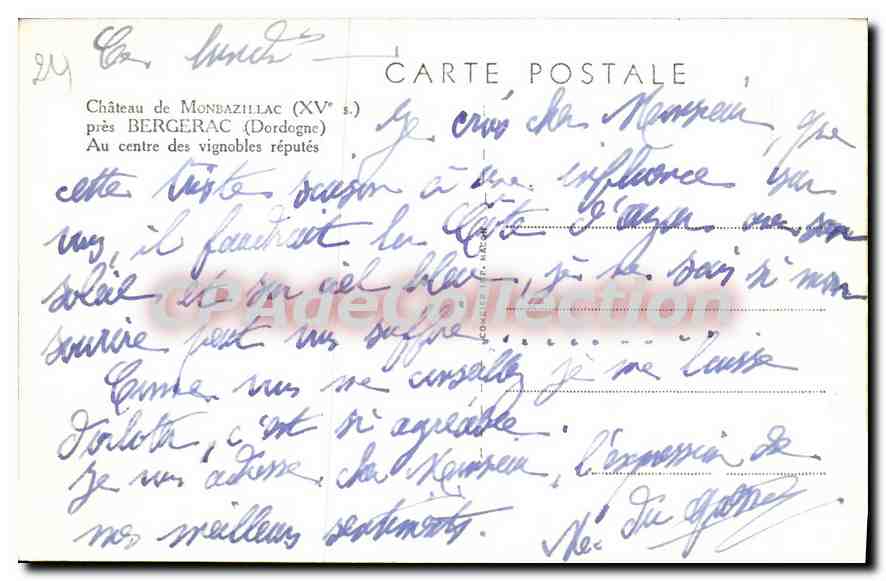 24
Ce lundi
CARTE POSTALE
Château de MONBAZILLAC (XVe s.)
près BERGERAC (Dordogne)
Au centre des vignobles réputés
Je crois cher Monsieur, que
cette triste saison a une influence sur
vous, il faudrait la Côte d'azur avec son
soleil et son ciel bleu, je ne sais si mon
sourire peut vous suffire . . . . . . . .
Comme vous me conseillez je me laisse
dorloter, c'est si agréable.
Je vous adresse cher Monsieur, l'expression de
mes meilleurs sentiments.
du
COMBIER IMP. MACON
CPAdeCollection